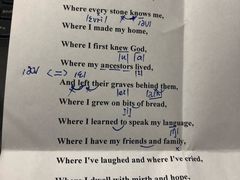 Where every stone knows me,
|evri| |əʊ|
Where I made my home,
Where I first knew God,
|u| |ɑ|
Where my ancestors lived,
<=> |e| |ɪ|
And left their graves behind them,
|e|
Where I grew on bits of bread,
Where I learned to speak my language,
Where I have my friends and family,
Where I've laughed and where I've cried,
Where I dwell with mirth and hope,